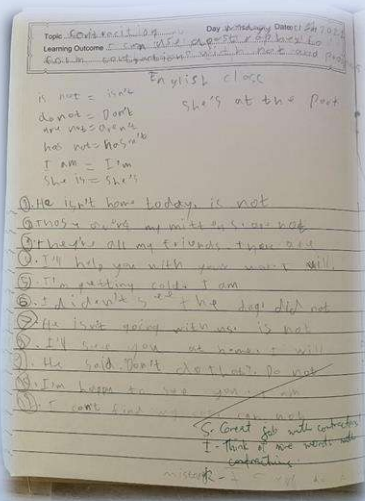 Topic Day Monday Date:
Learning Outcome I can use apostrophes to
form contractions with not and
English class
is not = isn't
do not = Don't
are not = aren't
has not = hasn't
I am = I'm
she is = she's
she's at the Port
1. He isn't home today. is not
2. Those aren't my mittens. are not
3. They're all my friends. They are
4. I'll help you with your work. I will.
5. I'm getting cold. I am
6. I didn't see the dog. did not
7. He isn't going with us. is not
8. I'll see you at home. I will
9. He said. Don't do that. Do not
10. I'm happy to see you. I am
11. I can't find can not
S- Great job with contractions!
I- Think of more words with
contractions.
R-